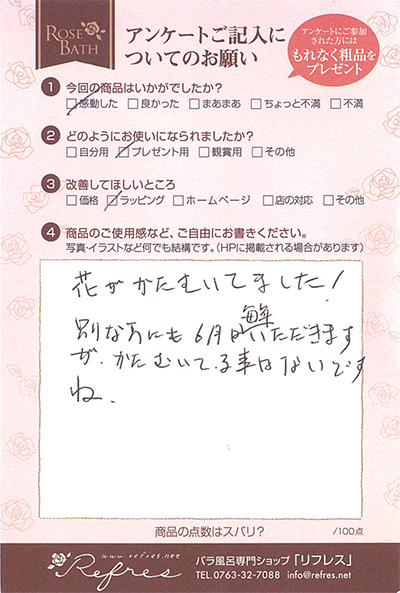 ROSE BATH
アンケートご記入に
ついてのお願い
アンケートにご参加
された方には
もれなく粗品を
プレゼント
1 今回の商品はいかがでしたか?
□感動した □良かった □まあまあ □ちょっと不満 □不満
2 どのようにお使いになられましたか?
□自分用 □プレゼント用 □観賞用 □その他
3 改善してほしいところ
□価格 □ラッピング □ホームページ □店の対応 □その他
4 商品のご使用感など、ご自由にお書きください。
写真・イラストなど何でも結構です。(HPに掲載される場合があります)
花がかたむいてました!
別な
にも6月
いただきます
が、かたむいてる事はないです
ね.
商品の点数はズバリ? /100点
www.refres.net
Refres
バラ風呂専門ショップ「リフレス」
TEL.0763-32-7088 info@refres.net